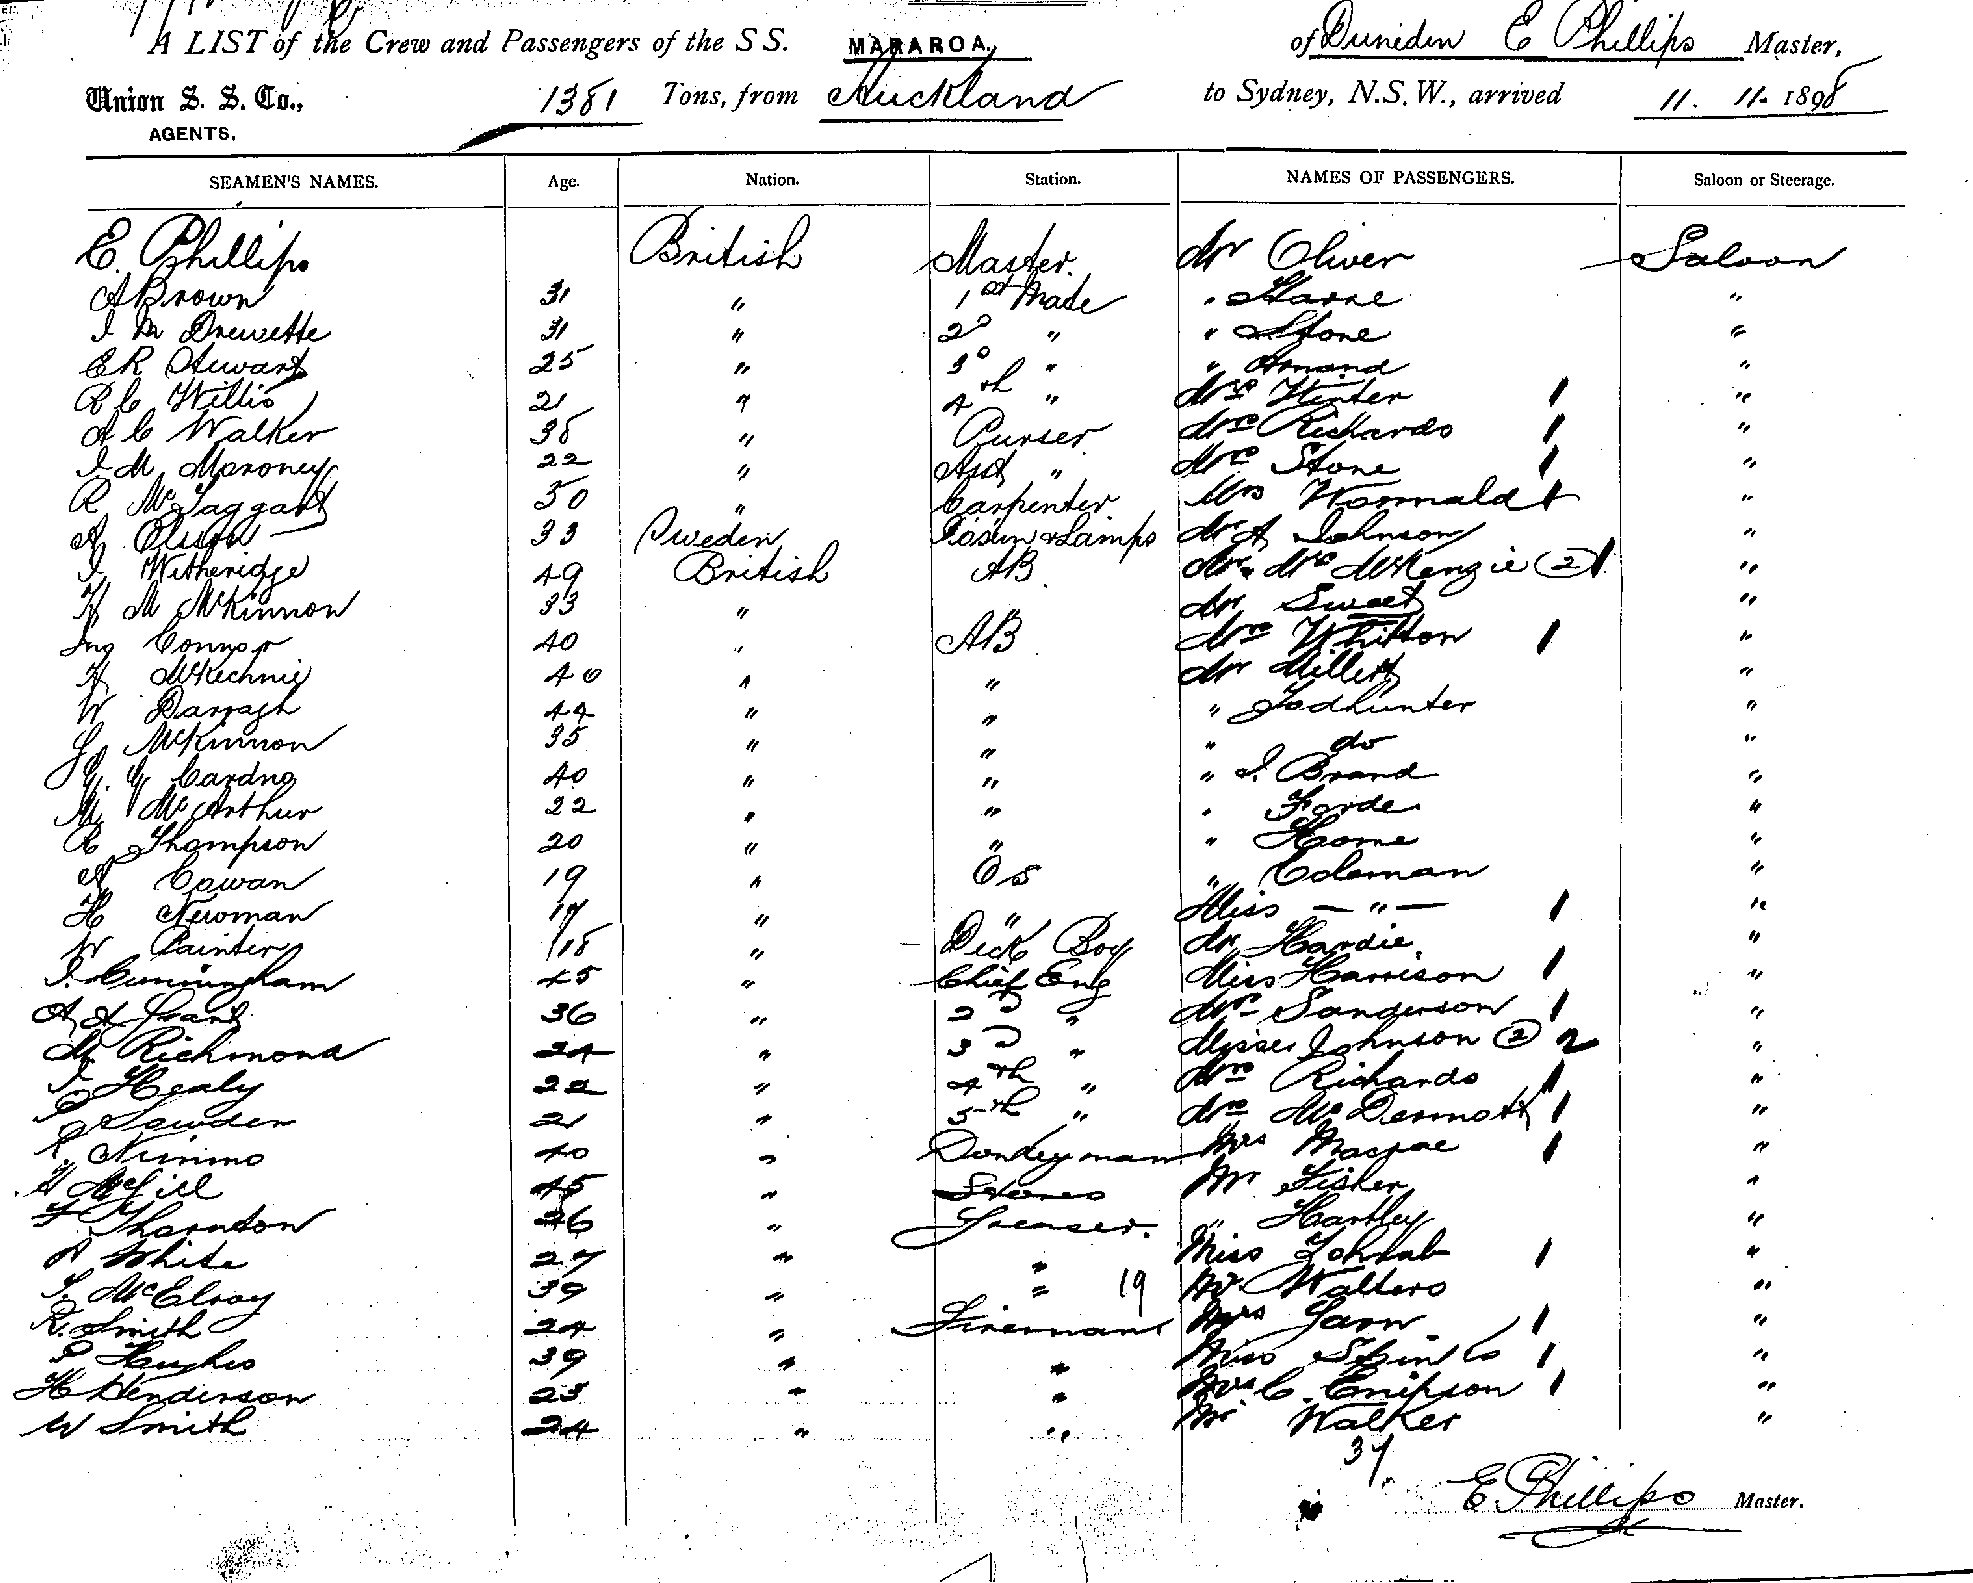 A LIST of the Crew and Passengers of the S S. MARAROA, of Dunedin E Phillips Master,
Union S. S. Co., 1381 Tons, from Auckland to Sydney, N.S.W., arrived 11. 11. 1898
AGENTS.
SEAMEN'S NAMES. Age. Nation. Station. NAMES OF PASSENGERS. Saloon or Steerage.
E. Phillips British Master. Mr Oliver Saloon
A Brown 31 " 1st Mate " "
J M Drewette 31 " 2d " " Stone "
E R Stuwart 25 " 3d " " Ormand "
R C Willis 21 " 4th " Mrs Winter 1 "
A C Walker 38 " Purser Mrs Richards 1 "
J M Moroney 22 " Asst " Mrs Stone 1 "
R McTaggart 50 " Carpenter Mrs Wormald 1 "
A 33 Sweden Bosun & Lamps Mr A Johnson "
J Witheridge 49 British AB Mr & Mrs McKenzie (2) 1 "
H M McKinnon 33 " " Mr Sweet "
Jno Connor 40 " AB Mrs Whitton 1 "
A McKechnie 40 " " Mr Millett "
W Darragh 44 " " " Todhunter "
J. McKinnon 35 " " " do "
G. G Cardno 40 " " " J. Brand "
M McArthur 22 " " " Forde "
R Thompson 20 " " " Home "
A Cowan 19 " O S " Coleman "
H Newman 17 " " Miss — " — 1 "
W Painter 18 " Deck Boy Mr Hardie "
J. Cunningham 45 " Chief Eng Miss Harrison 1 "
A A Grant 36 " 2d " Mrs Sanderson 1 "
M Richmond 24 " 3d " Misses Johnson (2) 2 "
J. Healy 22 " 4th " Mrs Richards 1 "
P Sowden 21 " 5th " Mrs McDermott 1 "
R. Nimmo 40 " Donkeyman Mrs Macrae 1 "
H McGill 45 " Stores Mr Fisher "
F Thornton 26 " Greaser. " Hartley "
A White 27 " " Miss 1 "
J. McElroy 39 " " 19 Mr Walters "
R. Smith 24 " Fireman Mrs 1 "
P Hughes 39 " " Miss Spinks 1 "
H Henderson 23 " " Mrs C. 1 "
W Smith 24 " " Mr Walker "
37.
E. Phillips Master.